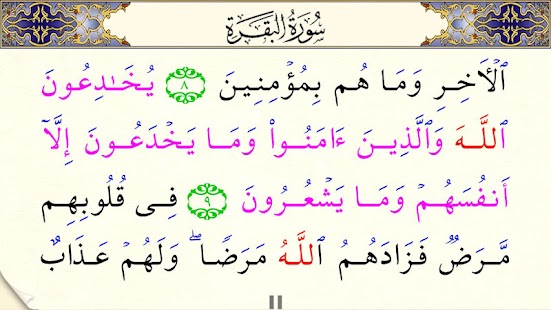 سُورَةُ البَقَرَةِ
ٱلْأَخِرِ وَمَا هُم بِمُؤْمِنِينَ ٨ يُخَـٰدِعُونَ
ٱللَّهَ وَٱلَّذِينَ ءَامَنُوا۟ وَمَا يَخْدَعُونَ إِلَّآ
أَنفُسَهُمْ وَمَا يَشْعُرُونَ ٩ فِى قُلُوبِهِم
مَّرَضٌ فَزَادَهُمُ ٱللَّهُ مَرَضًا ۖ وَلَهُمْ عَذَابٌ